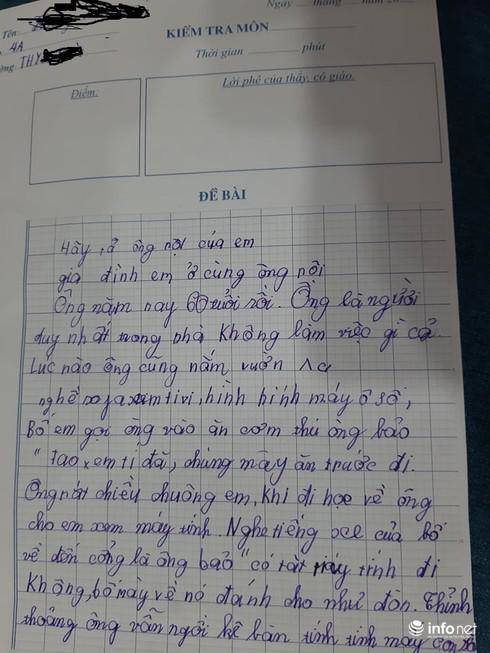 Ngày tháng năm 20
Tên
4A
KIỂM TRA MÔN
THY
Thời gian phút
Điểm:
Lời phê của thầy, cô giáo.
ĐỀ BÀI
Hãy tả ông nội của em
gia đình em ở cùng ông nôi
Ông năm nay 60 tuổi rồi. Ông là người
duy nhất trong nhà Không làm việc gì cả.
Luc nào ông cũng nằm vườn ra
nghế xem tivi, hình hình máy ô số,
Bố em gọi ông vào ăn cơm thì ông bảo
"Tao xem tí đã, chúng mày ăn trước đi.
Ông rất chiều chuông em, Khi đi học về ông
cho em xem máy tính. Nghe tiếng xe của bố
về đến cổng là ông bảo "có tắt máy tính đi
Không, bố mày về nó đánh cho như đòn. Thỉnh
thoảng ông vẫn ngồi kê bàn tính tính máy con
infonet